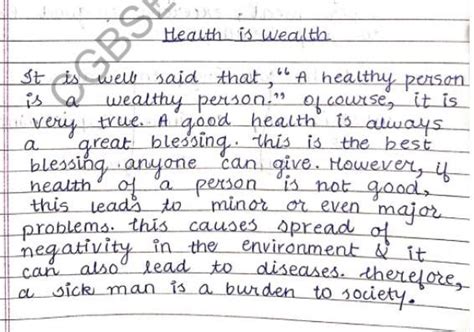 Health is Wealth
It is well said that, "A healthy person
is a wealthy person." Of course, it is
very true. A good health is always
a great blessing. This is the best
blessing anyone can give. However, if
health of a person is not good,
this leads to minor or even major
problems. This causes spread of
negativity in the environment & it
can also lead to diseases. Therefore,
a sick man is a burden to society.
CGBSE